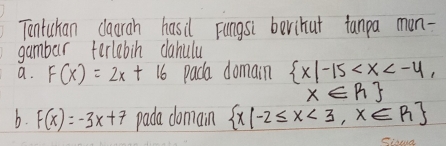 Tentukan daerah hasil Fungsi berikut tanpa men-
gambar terlebih dahulu
a. F(x) = 2x + 16 pada domain {x|-15 < x < -4,
x ∈ R}
b. F(x) = -3x+7 pada domain {x|-2 ≤ x < 3, x ∈ R}
Siswa